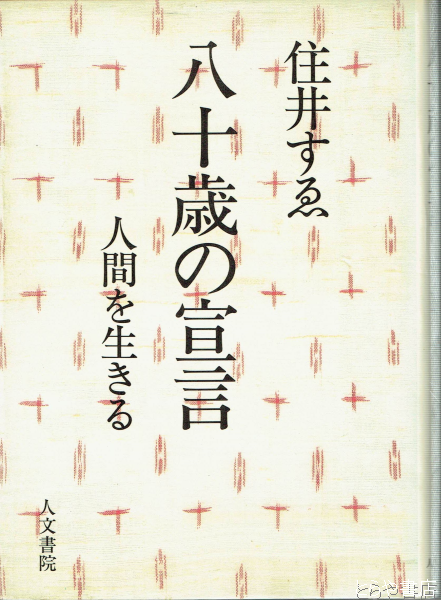 住井すゑ
八十歳の宣言
人間を生きる
人文書院
とらや書店